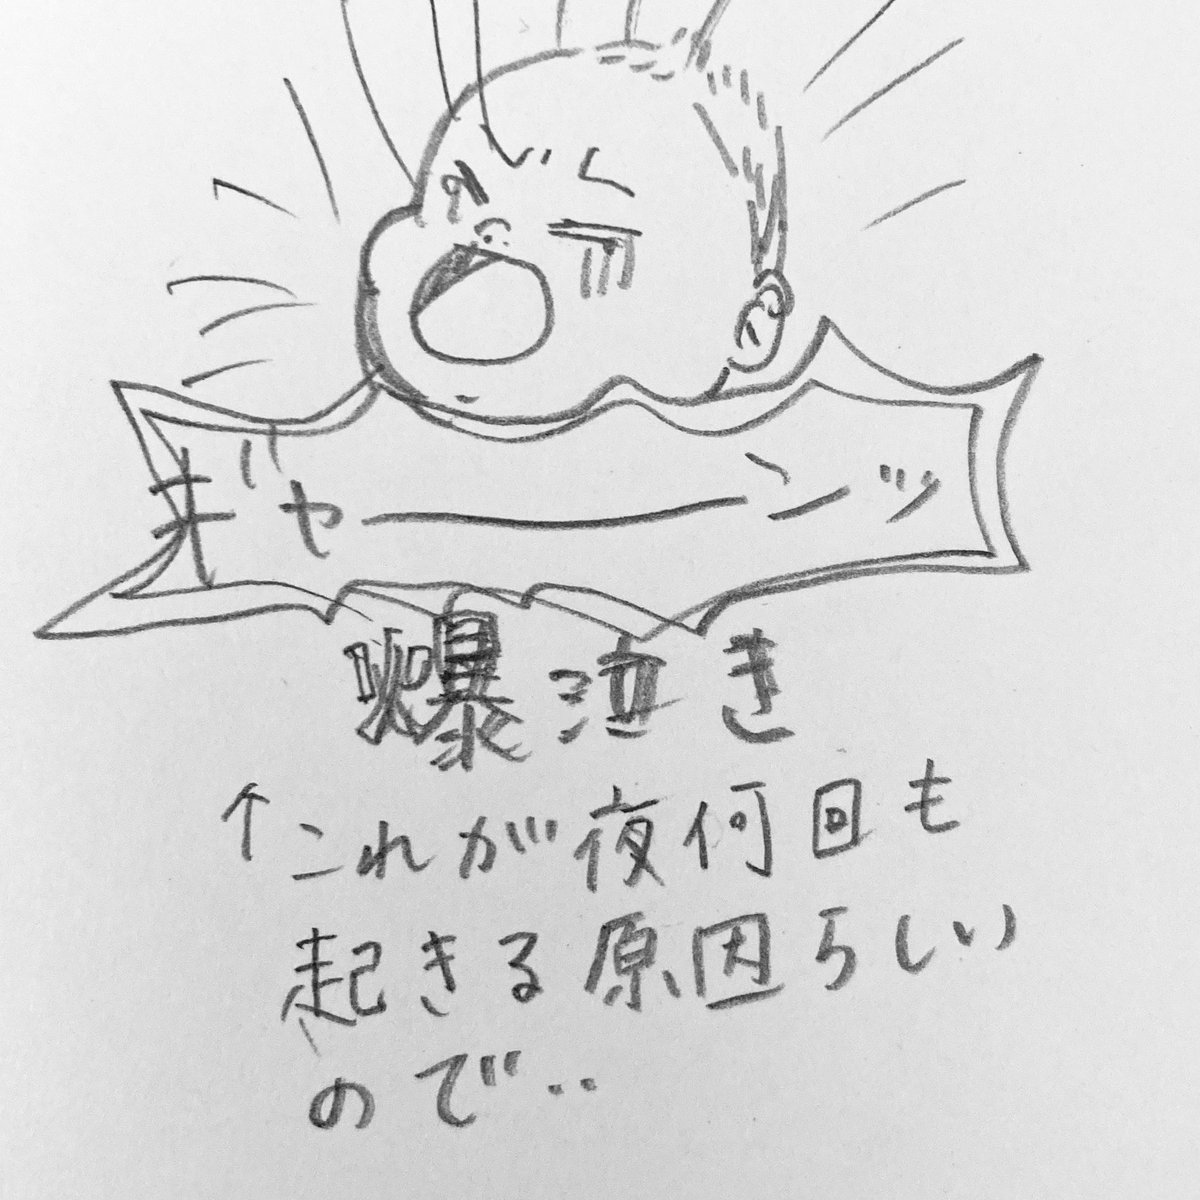 ギャーンッ
爆泣き
↑これが夜何回も
起きる原因らしい
ので‥